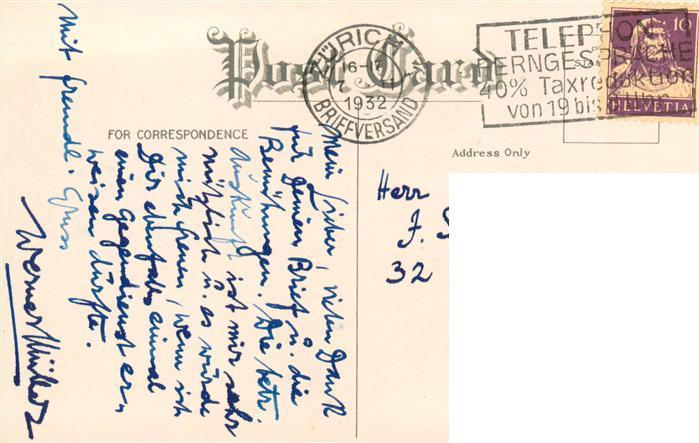 Post Card
ZÜRICH
16-17
1932
BRIEFVERSAND
TELEPHON
FERNGESPRÄCHE
40% Taxreduktion
von 19 bis
10
HELVETIA
FOR CORRESPONDENCE
Address Only
Mein Lieber, vielen Dank
für Deinen Brief u. die
Bemühungen. Die betr.
Auskunft ist mir sehr
nützlich u. es würde
mich freuen, wenn ich
Dir ebenfalls einmal
einen Gegendienst er-
weisen dürfte.
Mit freundl. Gruss
Werner Müller
Herr
J.
32